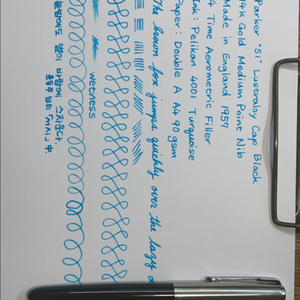 Parker '51' Lustraloy Cap Black
14K Gold Medium Point Nib
Made in England 1957
4 Time Aerometric Filler
Ink: Pelikan 4001 Turquoise
Paper: Double A A4 90gsm
The brown fox jumps quickly over the lazy
wetness
오늘밤에도 별이 바람에 스치운다.
윤동주 님의 「서시」 中.